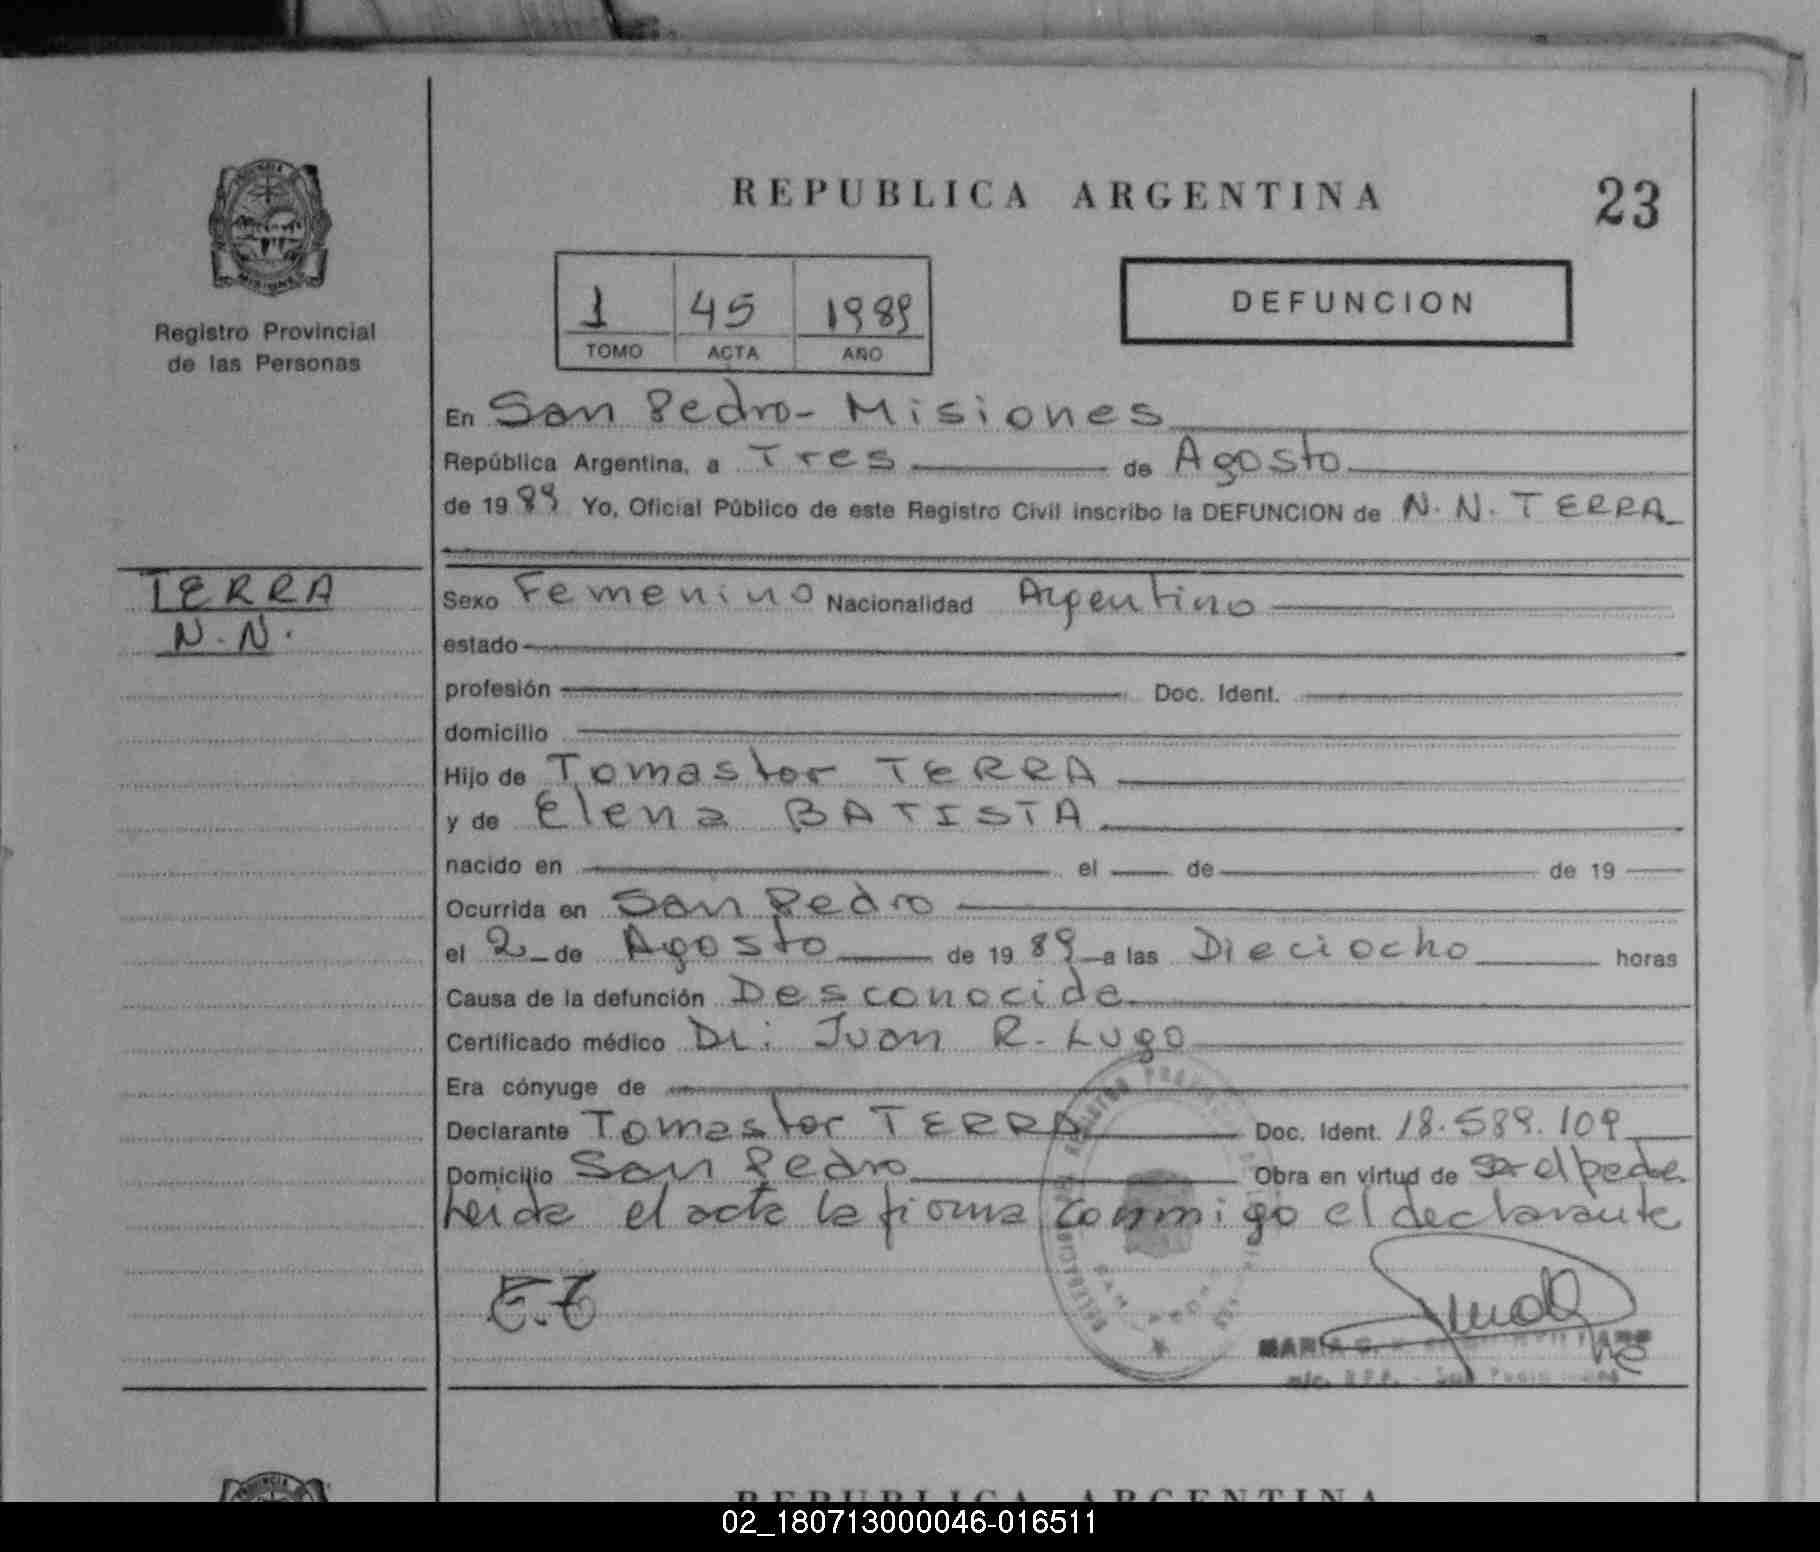 REPUBLICA ARGENTINA
23
Registro Provincial
de las Personas
1 45 1989
TOMO ACTA AÑO
DEFUNCION
En San Pedro - Misiones
República Argentina, a Tres de Agosto
de 1989 Yo, Oficial Público de este Registro Civil inscribo la DEFUNCION de N. N. TERRA
TERRA
N. N.
Sexo Femenino Nacionalidad Argentino
estado
profesión Doc. Ident.
domicilio
Hijo de Tomastor TERRA
y de Elena BATISTA
nacido en el de de 19
Ocurrida en San Pedro
el 2 de Agosto de 1989 a las Dieciocho horas
Causa de la defunción Desconocida
Certificado médico Dr: Juan R. Lugo
Era cónyuge de
Declarante Tomastor TERRA Doc. Ident. 18.589.109
Domicilio San Pedro Obra en virtud de ser el padre
Leida el acta la firma conmigo el declarante
REPUBLICA ARGENTINA
02_180713000046-016511